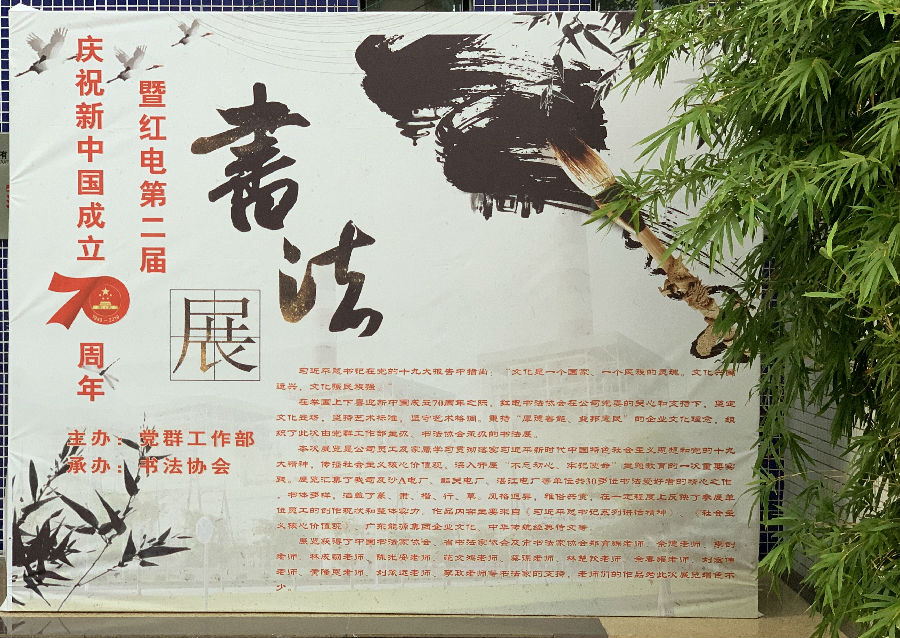 庆祝新中国成立
70
周年
暨红电第二届
書法
展
主办：党群工作部
承办：书法协会
习近平总书记在党的十九大报告中指出：“文化是一个国家、一个民族的灵魂。文化兴国
运兴，文化强民族强。”
在举国上下喜迎新中国成立70周年之际，红电书法协会在公司党委的关心和支持下，坚定
文化自信，坚持艺术标准，坚守艺术格调，秉持“厚德善能、益邦惠民”的企业文化理念，组
织了此次由党群工作部主办、书法协会承办的书法展。
本次展览是公司员工及家属学习贯彻落实习近平新时代中国特色社会主义思想和党的十九
大精神，传播社会主义核心价值观，深入开展“不忘初心、牢记使命”主题教育的一次重要实
践。展览汇集了我司及沙A电厂、韶关电厂、湛江电厂等单位共30多位书法爱好者的精心之作
，书体多样，涵盖了篆、隶、楷、行、草。风格迥异，雅俗共赏，在一定程度上反映了参展单
位员工的创作现状和整体实力。作品内容主要来自《习近平总书记系列讲话精神》、《社会主
义核心价值观》、广东能源集团企业文化、中华传统经典诗文等。
展览获得了中国书法家协会、省书法家协会及市书法家协会
老师、
老师、
老师、
老师等书法家的支持，老师们的作品为此次展览增色不
少。